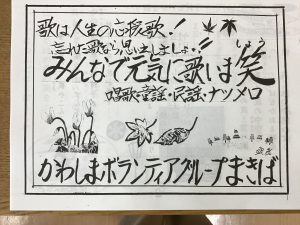 歌は人生の応援歌!
忘れた歌なら思い出しましょ!!
みんなで元気に歌いま笑
しょう
唱歌・童謡・民謡・ナツメロ
かわしまボランティアグループまきば